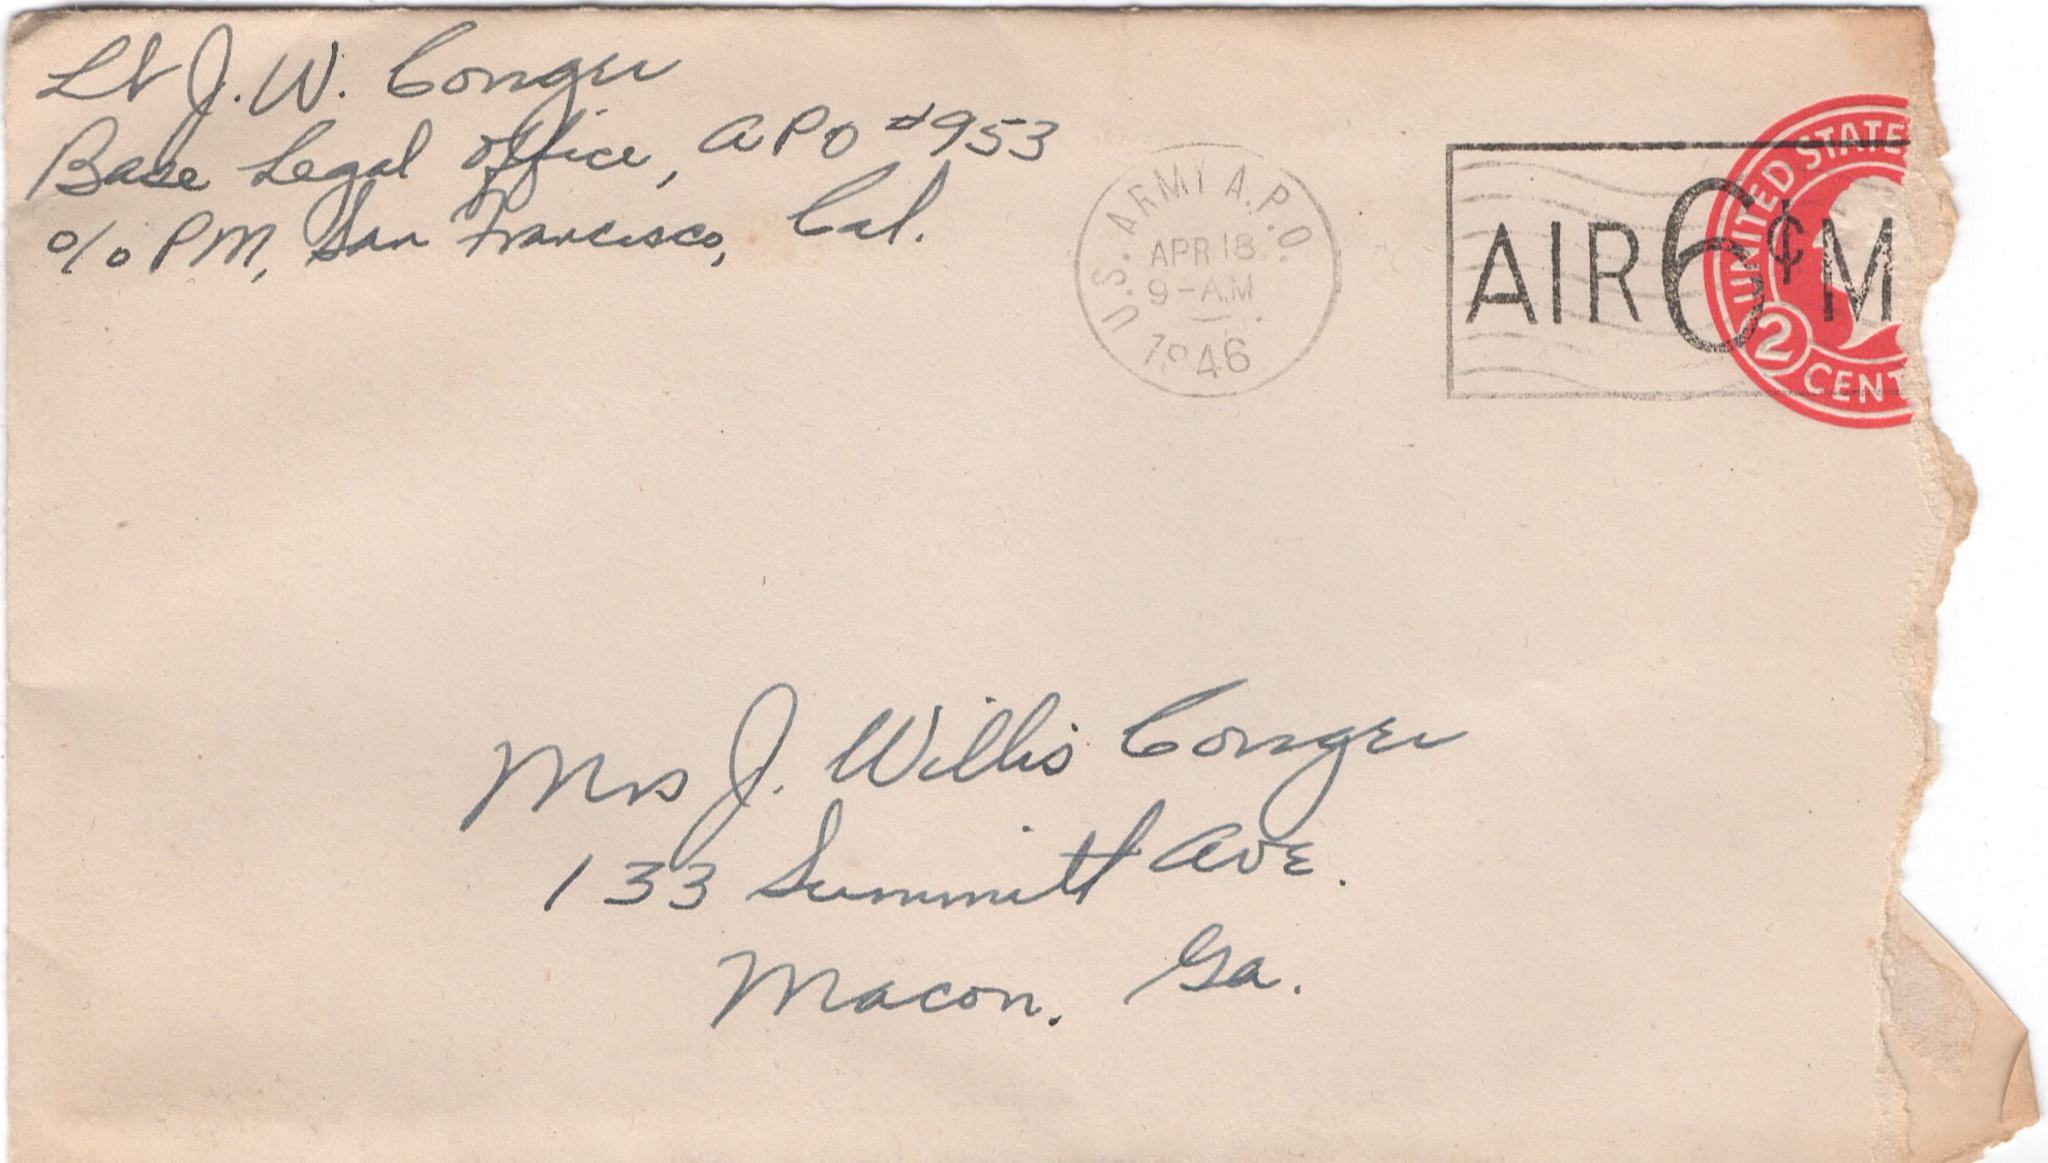 Lt J. W. Conger
Base Legal Office, APO #953
c/o PM, San Francisco, Cal.
U.S. ARMY A.P.O.
APR 18
9-AM
1946
AIR 6¢ M
UNITED STATE
2 CENT
Mrs J. Willis Conger
133 Summitt Ave.
Macon, Ga.